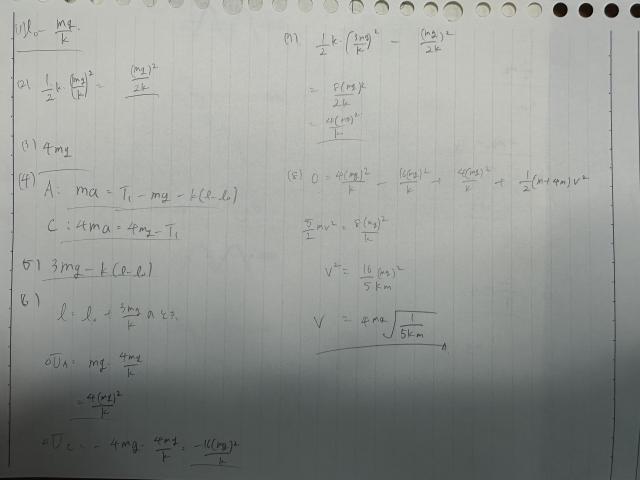 (1) l₀ - mg/k
(2) 1/2 k·(mg/k)² = (mg)²/2k
(3) 4mg
(4)
A: ma = T₁ - mg - k(l-l₀)
C: 4ma = 4mg - T₁
(5) 3mg - k(l-l₀)
(6)
l = l₀ + 3mg/k のとき.
ΔU_A = mg· 4mg/k
= 4(mg)²/k
ΔU_C = - 4mg· 4mg/k = -16(mg)²/k
(7) 1/2 k·(3mg/k)² - (mg)²/2k
= 8(mg)²/2k
= 4(mg)²/k
(8) 0 = 4(mg)²/k - 16(mg)²/k + 4(mg)²/k + 1/2(m+4m)v²
5/2 mv² = 8(mg)²/k
v² = 16/5km (mg)²
v = 4mg√(1/5km)